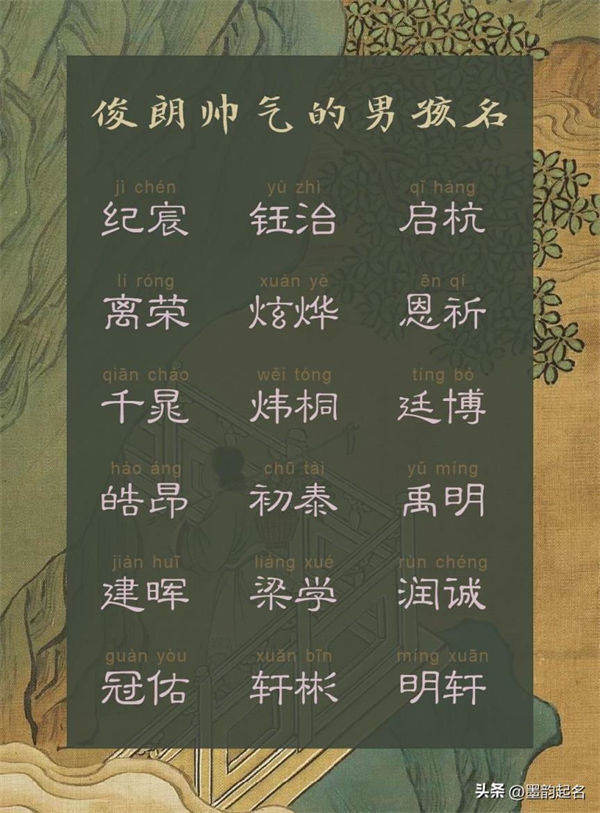 俊朗帅气的男孩名
jì chén yù zhì qǐ háng
纪宸 钰治 启杭
lí róng xuàn yè ēn qí
离荣 炫烨 恩祈
qiān cháo wěi tóng tíng bó
千晁 炜桐 廷博
hào áng chū tài yǔ míng
皓昂 初泰 禹明
jiàn huī liáng xué rùn chéng
建晖 梁学 润诚
guàn yòu xuān bīn míng xuān
冠佑 轩彬 明轩
头条 @墨韵起名